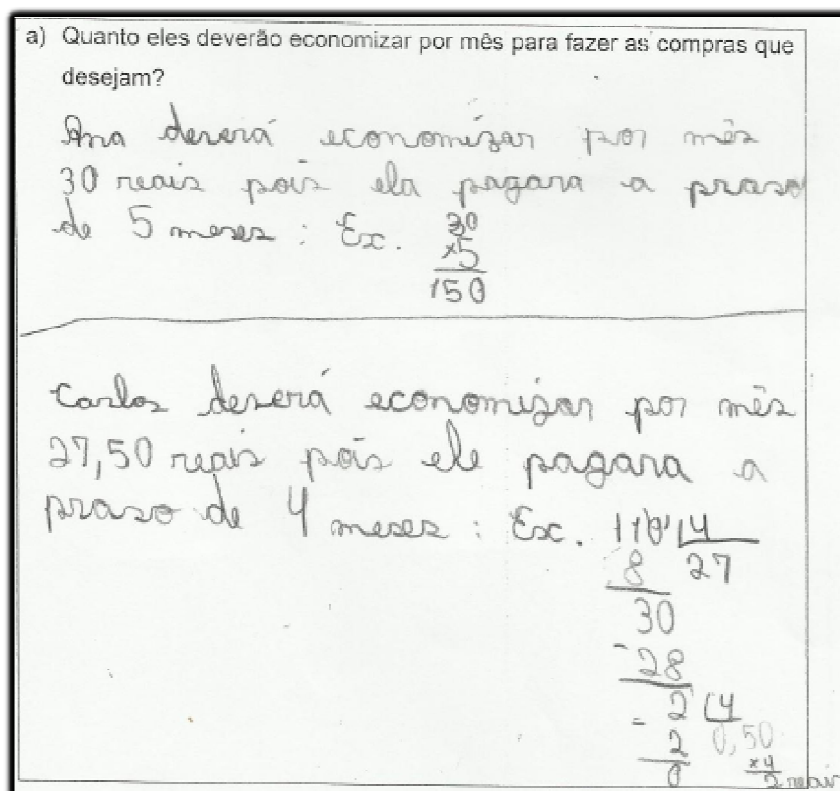 a) Quanto eles deverão economizar por mês para fazer as compras que
desejam?
Ana deverá economizar por mês
30 reais pois ela pagara a praso
de 5 meses : Ex. 30
×5
150
Carlos deverá economizar por mês
27,50 reais pois ele pagara a
praso de 4 meses : Ex. 110 4
8 27
30
-28
- 2 4
2 0,50
0 ×4
2 reais